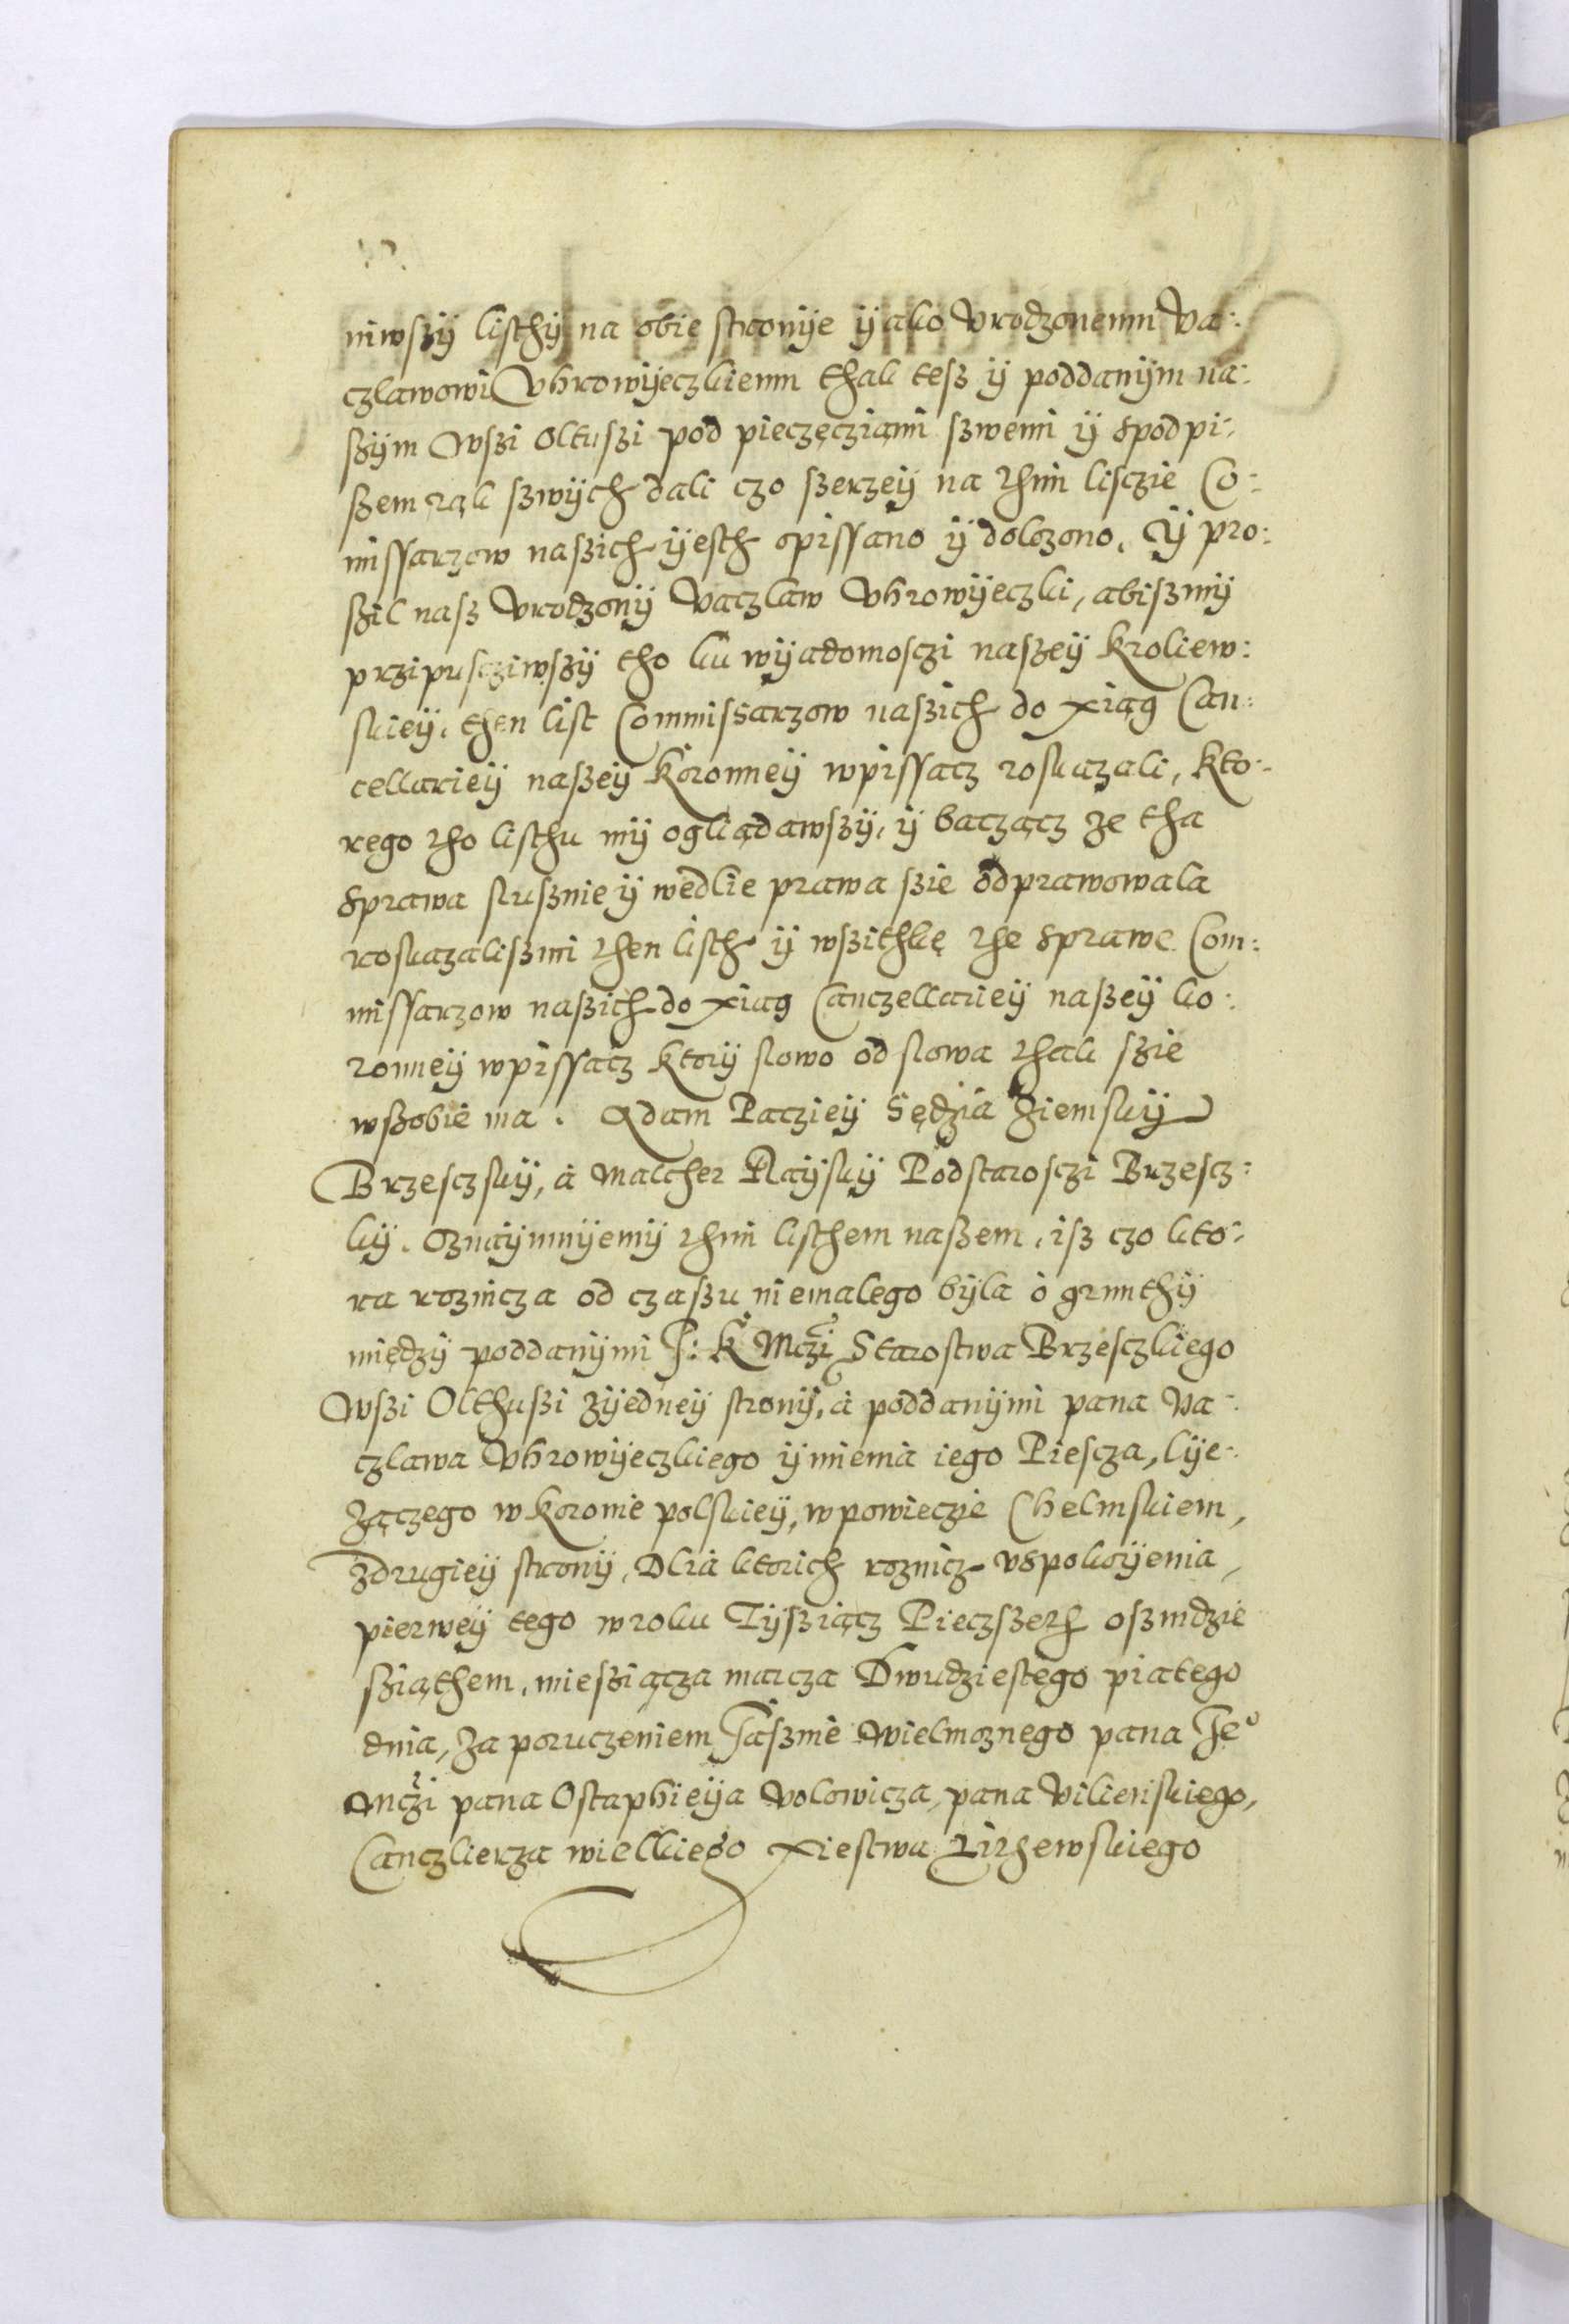 niwszÿ listhÿ na obie stronÿe ÿako Vrodzonemu Va:
czlawowi Vhrowÿeczkiemu thak tesz ÿ poddanÿm na:
szÿm Wszi Oltuszi pod pieczęcziąmi szwemi ÿ spodpi:
szem rąk szwÿch dali czo szerzeÿ na thim lisczie Co:
missarzow naszich ÿesth opissano ÿ dolozono. Ÿ pro:
szil nasz Vrodzonÿ Vaczlaw Vhrowÿeczki, abiszmÿ
przipusciwszÿ tho ku wÿadomosczi naszeÿ Kroliew:
skieÿ, then list Commissarzow naszich do xiąg Can:
cellarieÿ naszeÿ Koronneÿ wpissacz roskazali, kto:
rego tho listhu mÿ ogliądawszÿ, ÿ bacząc ze tha
sprawa slusznie ÿ wedlie prawa szie odprawowala
roskazaliszmi then listh ÿ wszithkę the sprawe Com:
missarzow naszich do xiag Canczellarieÿ naszeÿ ko:
ronneÿ wpissacz ktorÿ slowo od slowa thak szie
wszobie ma. Adam Paczieÿ Sędzia Ziemskÿ
Brzesczskÿ, a Malcher Raÿskÿ Podstarosczi Brzescz:
kÿ. Oznaÿmuÿemÿ thim listhem naszem, isz czo kto:
ra roznicza od czaszu niemalego bÿla o grunthÿ
międzÿ poddanÿmi J: K Mczi Starostwa Brzesczkiego
Wszi Olthuszi zÿedneÿ stronÿ, a poddanÿmi pana Va:
czlawa Vhrowÿeczkiego ÿmienia iego Piescza, lÿe:
ząc​zego w Koronie polskieÿ, w powieczie Chelmskiem,
zdrugieÿ stronÿ, Dlia ktorich roznicz vspokoÿenia,
pierweÿ tego w roku Tÿsziącz Pieczszeth oszmdzie
sziąthem, miesziącza marcza Dwudziestego piatego
dnia, za poruczeniem Jaszmie Wielmoznego pana Je°
Mczi pana Ostaphieÿa Volowicza, pana Vilienskiego,
Canczlierza wielkiego xiestwa Lithewskiego